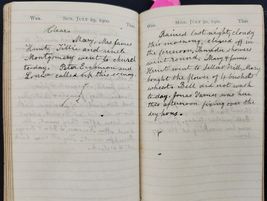 Wea. SUN. JULY 29, 1900 Ther.
Clear.
Mary, Mrs James
Hunt, Tillie and
Montgomery went to church
today. Peter and
Louisa called up this evening.
Wea. MON. JULY 30, 1900 Ther.
Rained last night, cloudy
this morning, cleared off in
the forenoon, Thunder showers
went round. Mary & James
Hunt went to Mill, Mary
bought the flower 12 bushels
wheat. Bill did not work
to day. James was here
this afternoon fixing over the